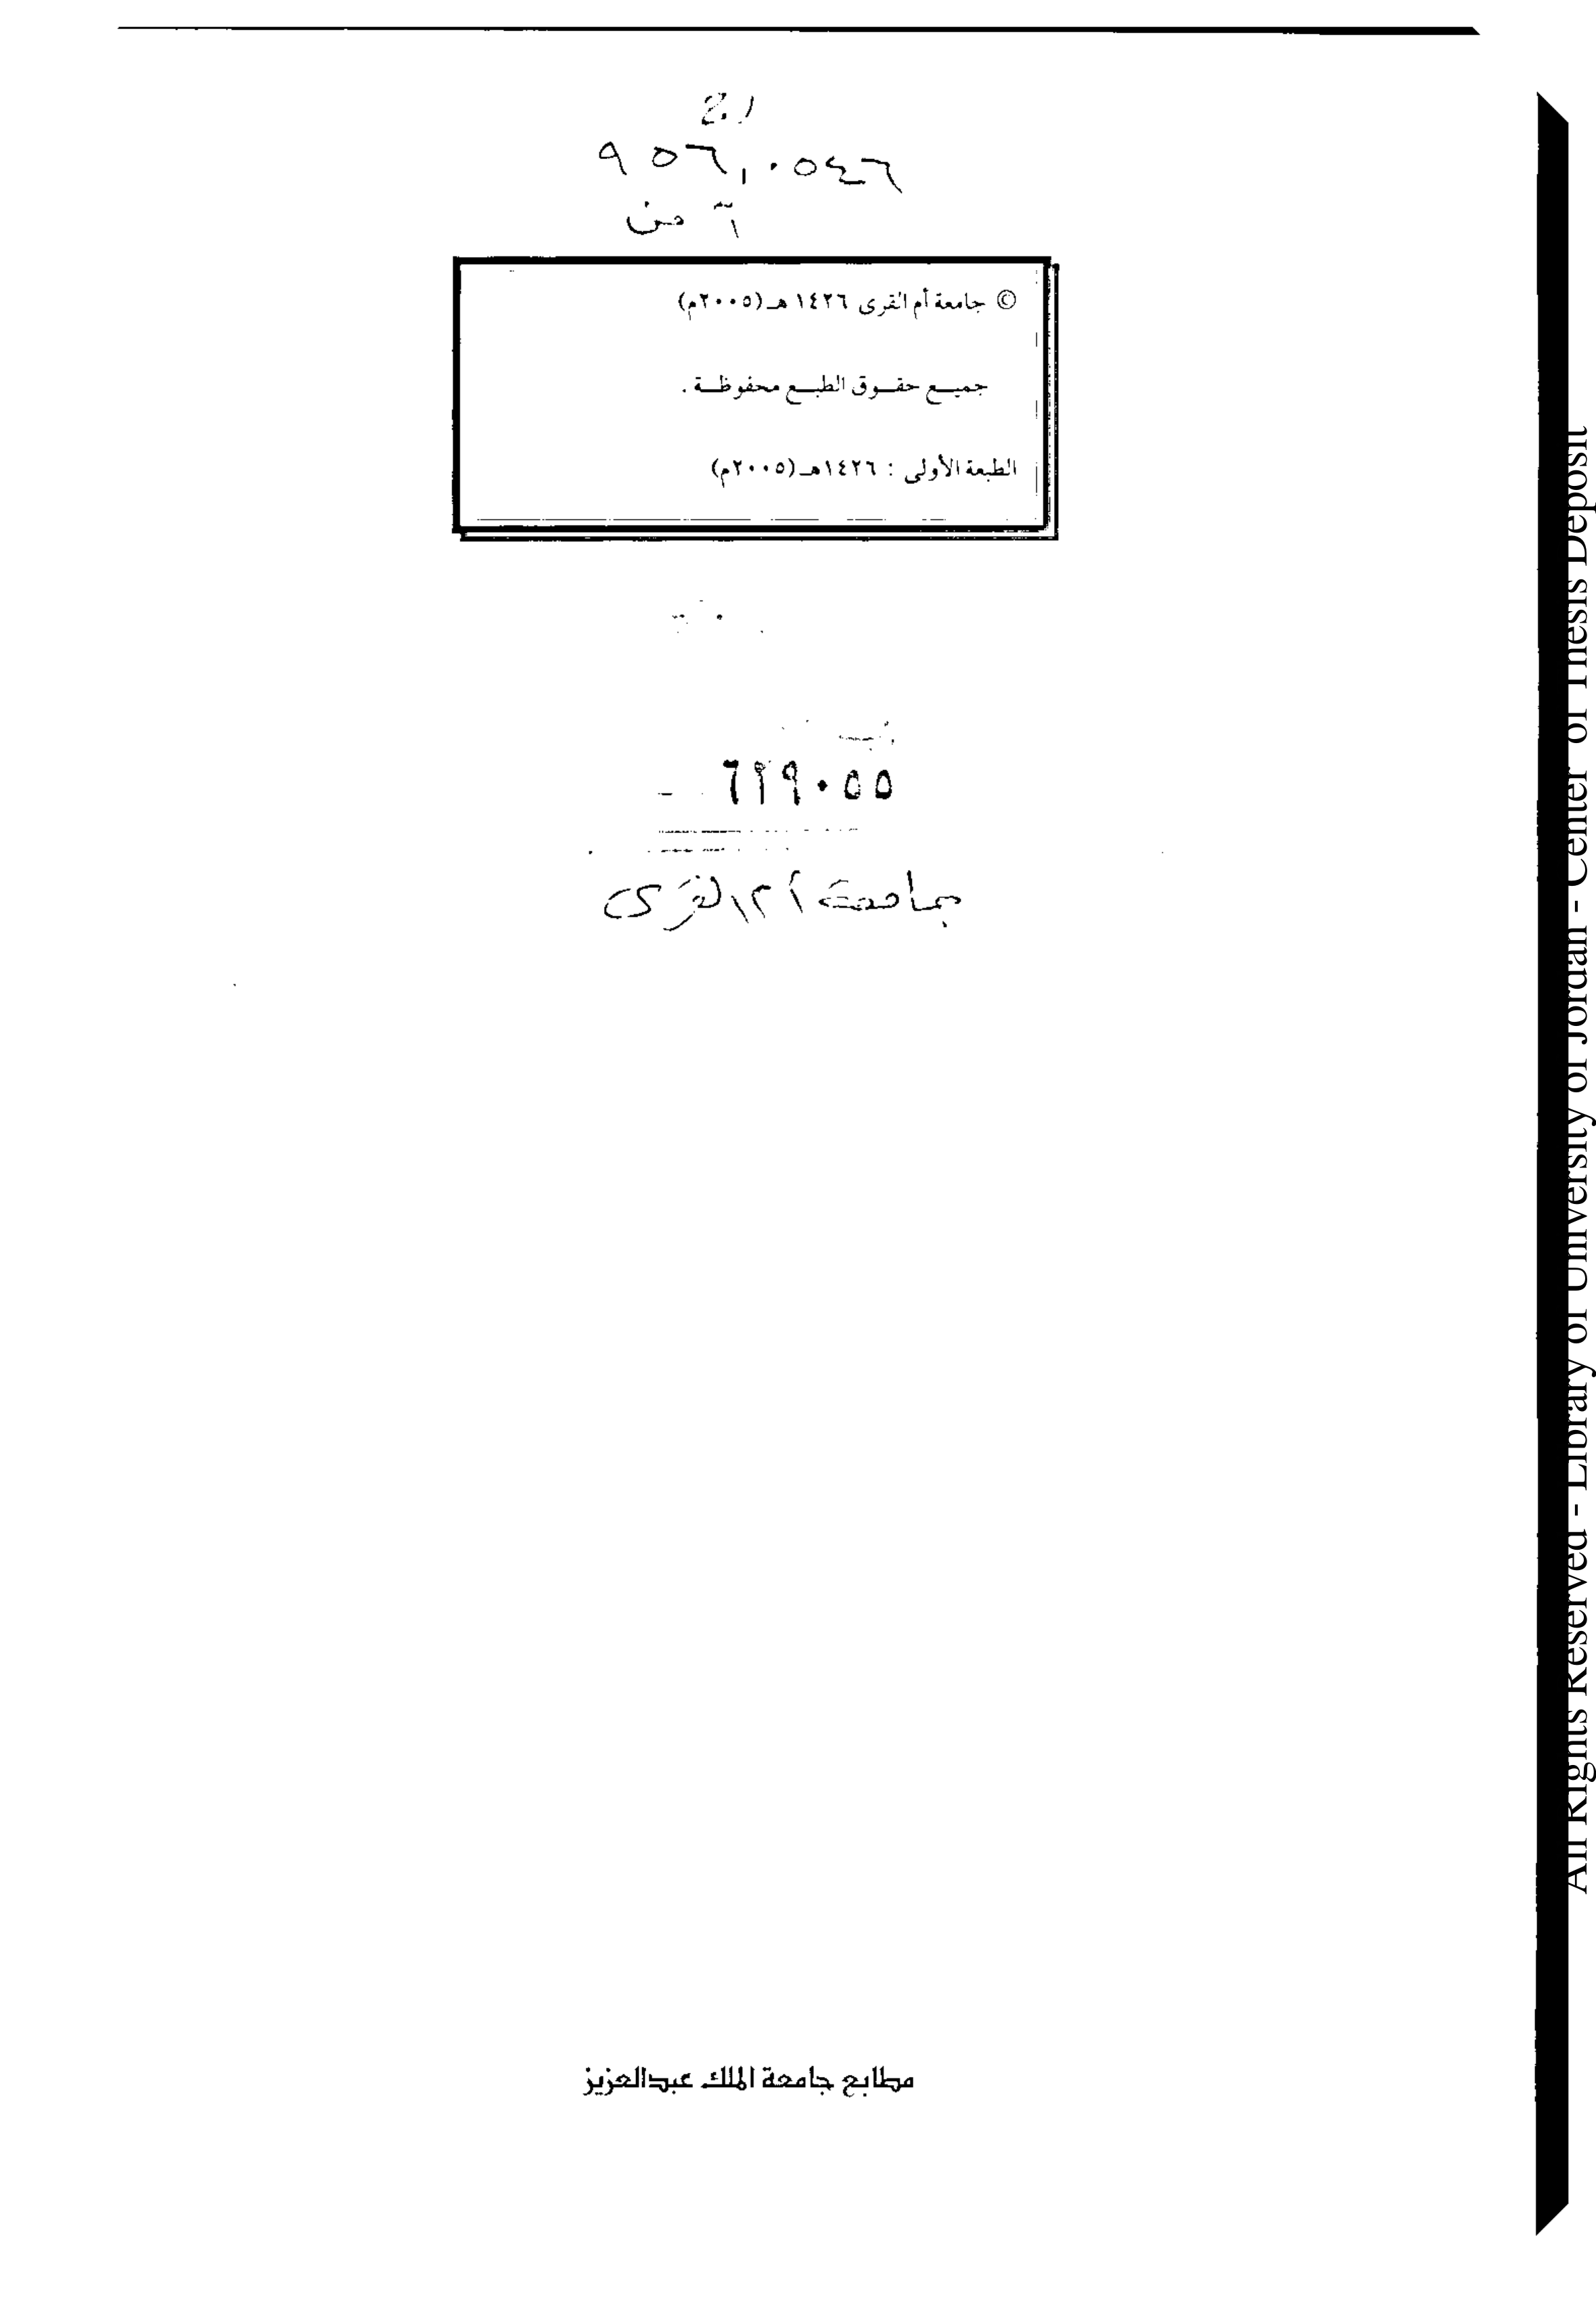 ٩٥٦,٠٥٤٦
© جامعة أم القرى ١٤٢٦ هـ (٢٠٠٥م)
جميع حقوق الطبع محفوظة .
الطبعة الأولى : ١٤٢٦هـ (٢٠٠٥م)
٦٢٩٠٥٥
جامعة أم القرى
مطابع جامعة الملك عبدالعزيز
All Rights Reserved - Library of University of Jordan - Center of Thesis Deposit